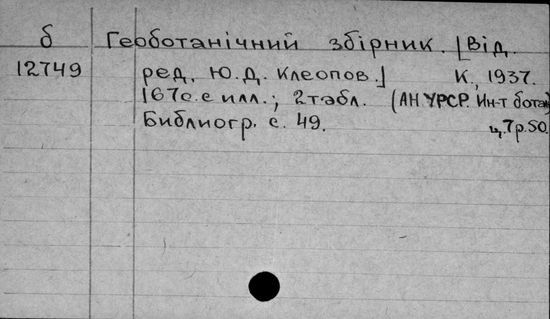 б Геботанічний збірник. [Від.
12749 ред. Ю. Д. Клеопов.] К., 1937.
167 с. с илл.; 2 табл. (АН УРСР. Ин-т ботан
Библиогр. с. 49. ц. 7 р. 50.